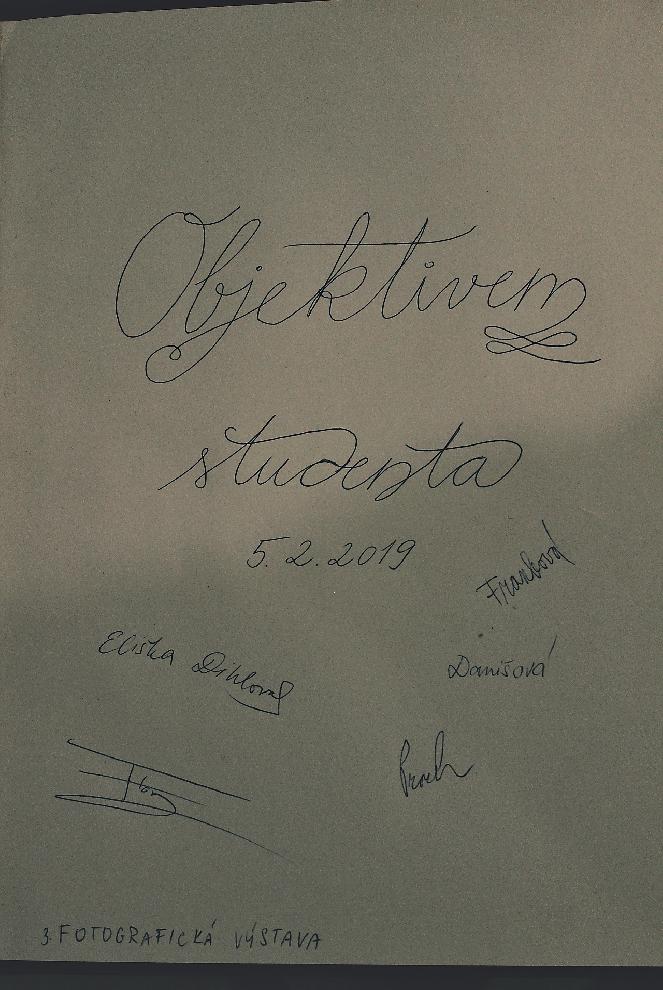 Objektivem
studenta
5. 2. 2019
Franková
Eliška
Danišová
3. FOTOGRAFICKÁ VÝSTAVA